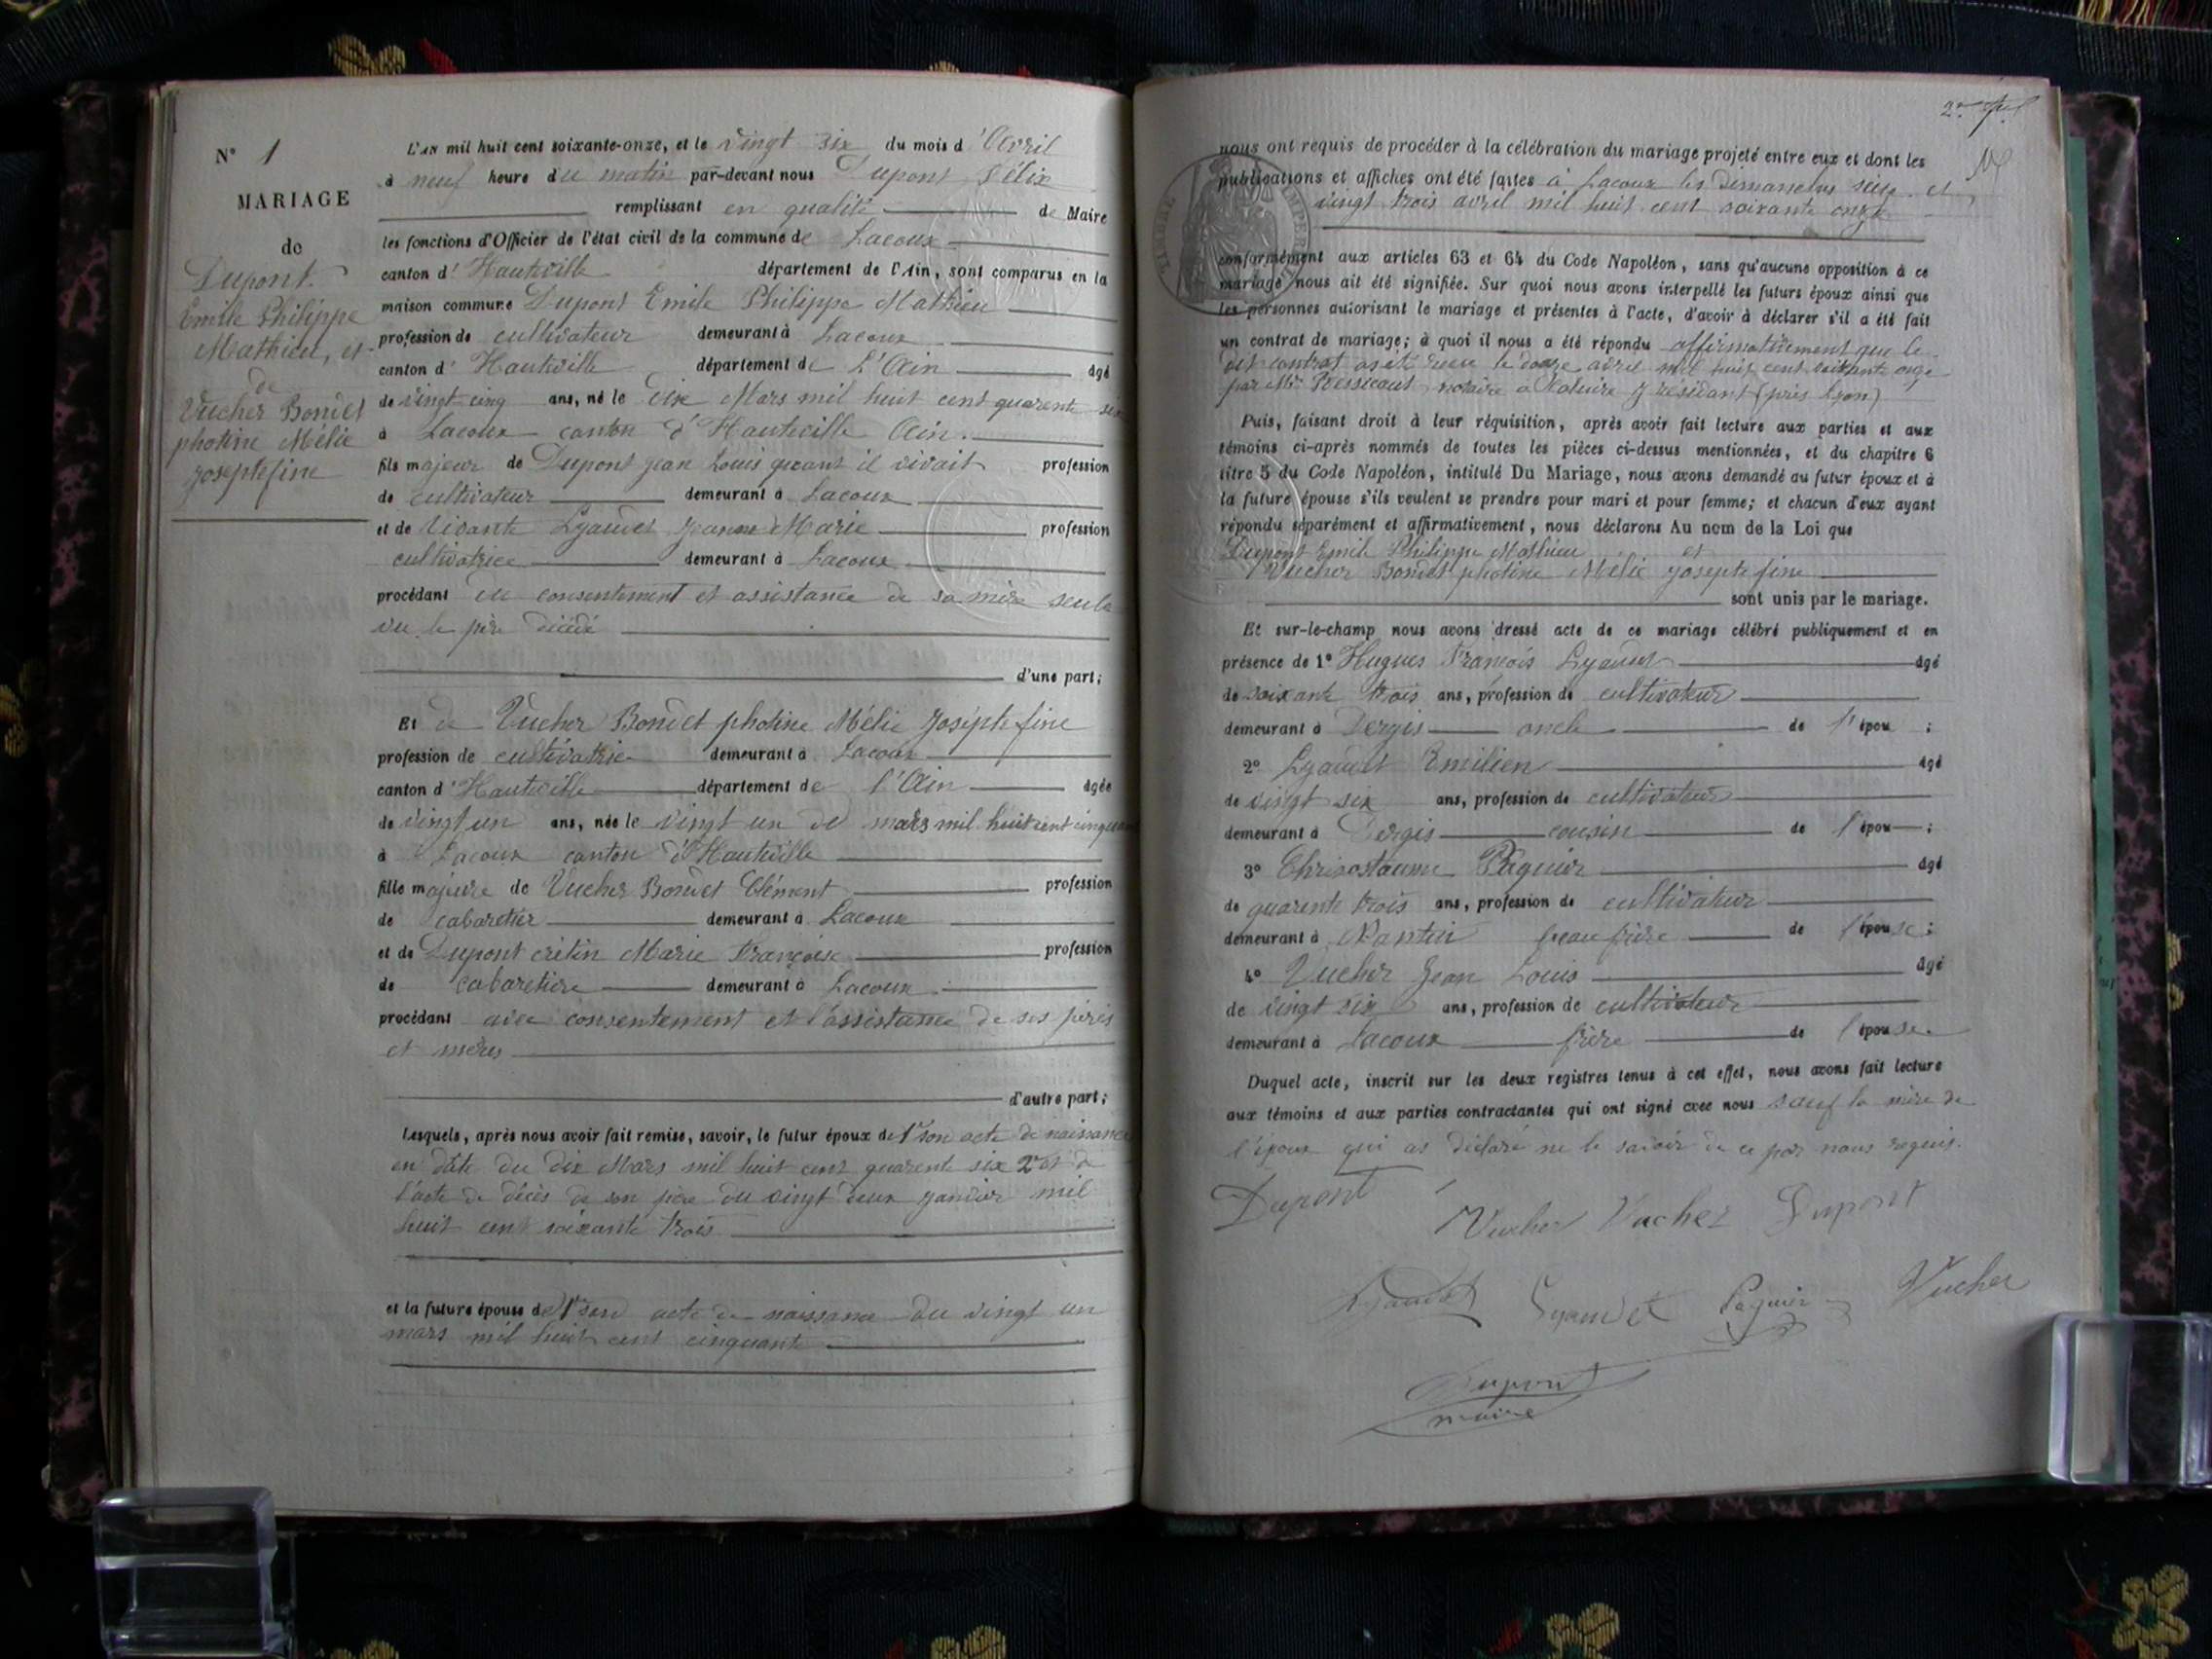 N° 1
MARIAGE
de
Dupont
Emile Philippe
Mathieu, et
de
Vucher Bondet
photine Mélie
Joseptefine
L'AN mil huit cent soixante-onze, et le vingt six du mois d'Avril
à neuf heure du matin par-devant nous Dupont Félix
remplissant en qualité de Maire
les fonctions d'Officier de l'état civil de la commune de Lacoux
canton d'Hauteville département de l'Ain, sont comparus en la
maison commune Dupont Emile Philippe Mathieu
profession de cultivateur demeurant à Lacoux
canton d'Hauteville département de L'Ain âgé
de vingt cinq ans, né le dix Mars mil huit cent quarente six
à Lacoux canton d'Hauteville Ain.
fils majeur de Dupont jean Louis quant il vivait profession
de cultivateur demeurant à Lacoux
et de vivante Lyaudet jeanne Marie profession
cultivatrice demeurant à Lacoux
procédant du consentement et assistance de sa mère seule
vu le père décédé
d'une part;
Et de Vucher Bondet photine Mélie Joseptefine
profession de cultivatrice demeurant à Lacoux
canton d'Hauteville département de l'Ain âgée
de vingt un ans, née le vingt un de mars mil huit cent cinquante
à Lacoux canton d'Hauteville
fille majeure de Vucher Bondet Clément profession
de cabaretier demeurant à Lacoux
et de Dupont crétin Marie Françoise profession
de cabaretière demeurant à Lacoux
procédant avec consentement et l'assistance de ses pères
et mères
d'autre part;
Lesquels, après nous avoir fait remise, savoir, le futur époux de 1° son acte de naissance
en date du dix Mars mil huit cent quarente six 2° et de
l'acte de décès de son père du vingt deux janvier mil
huit cent soixante trois
et la future épouse de 1° son acte de naissance du vingt un
mars mil huit cent cinquante
nous ont requis de procéder à la célébration du mariage projeté entre eux et dont les
publications et affiches ont été faites à Lacoux les dimanches seize et
vingt trois avril mil huit cent soixante onze
TIMBRE IMPERIAL
conformément aux articles 63 et 64 du Code Napoléon, sans qu'aucune opposition à ce
mariage nous ait été signifiée. Sur quoi nous avons interpellé les futurs époux ainsi que
les personnes autorisant le mariage et présentes à l'acte, d'avoir à déclarer s'il a été fait
un contrat de mariage; à quoi il nous a été répondu affirmativement que le
dit contrat as été reçu le douze avril mil huit cent soixante onze
par Mr notaire a y résidant (près Lyon)
Puis, faisant droit à leur réquisition, après avoir fait lecture aux parties et aux
témoins ci-après nommés de toutes les pièces ci-dessus mentionnées, et du chapitre 6
titre 5 du Code Napoléon, intitulé Du Mariage, nous avons demandé au futur époux et à
la future épouse s'ils veulent se prendre pour mari et pour femme; et chacun d'eux ayant
répondu séparément et affirmativement, nous déclarons Au nom de la Loi que
Dupont Emile Philippe Mathieu et
Vucher Bondet photine Mélie Joseptefine
sont unis par le mariage.
Et sur-le-champ nous avons dressé acte de ce mariage célébré publiquement et en
présence de 1° Hugues François Lyaudet âgé
de soixante trois ans, profession de cultivateur
demeurant à Dergis oncle de l'épou ;
2° Lyaudet Emilien âgé
de vingt six ans, profession de cultivateur
demeurant à Dergis cousin de l'épou ;
3° Chrisostaume Paquier âgé
de quarente trois ans, profession de cultivateur
demeurant à Nantui beau frère de l'épouse ;
4° Vucher Jean Louis âgé
de vingt six ans, profession de cultivateur
demeurant à Lacoux frère de l'épouse
Duquel acte, inscrit sur les deux registres tenus à cet effet, nous avons fait lecture
aux témoins et aux parties contractantes qui ont signé avec nous sauf la mère de
l'époux qui as déclaré ne le savoir de ce par nous requis.
Dupont
Vucher Vucher Dupont
Lyaudet Lyaudet Paquier Vucher
Dupont
maire